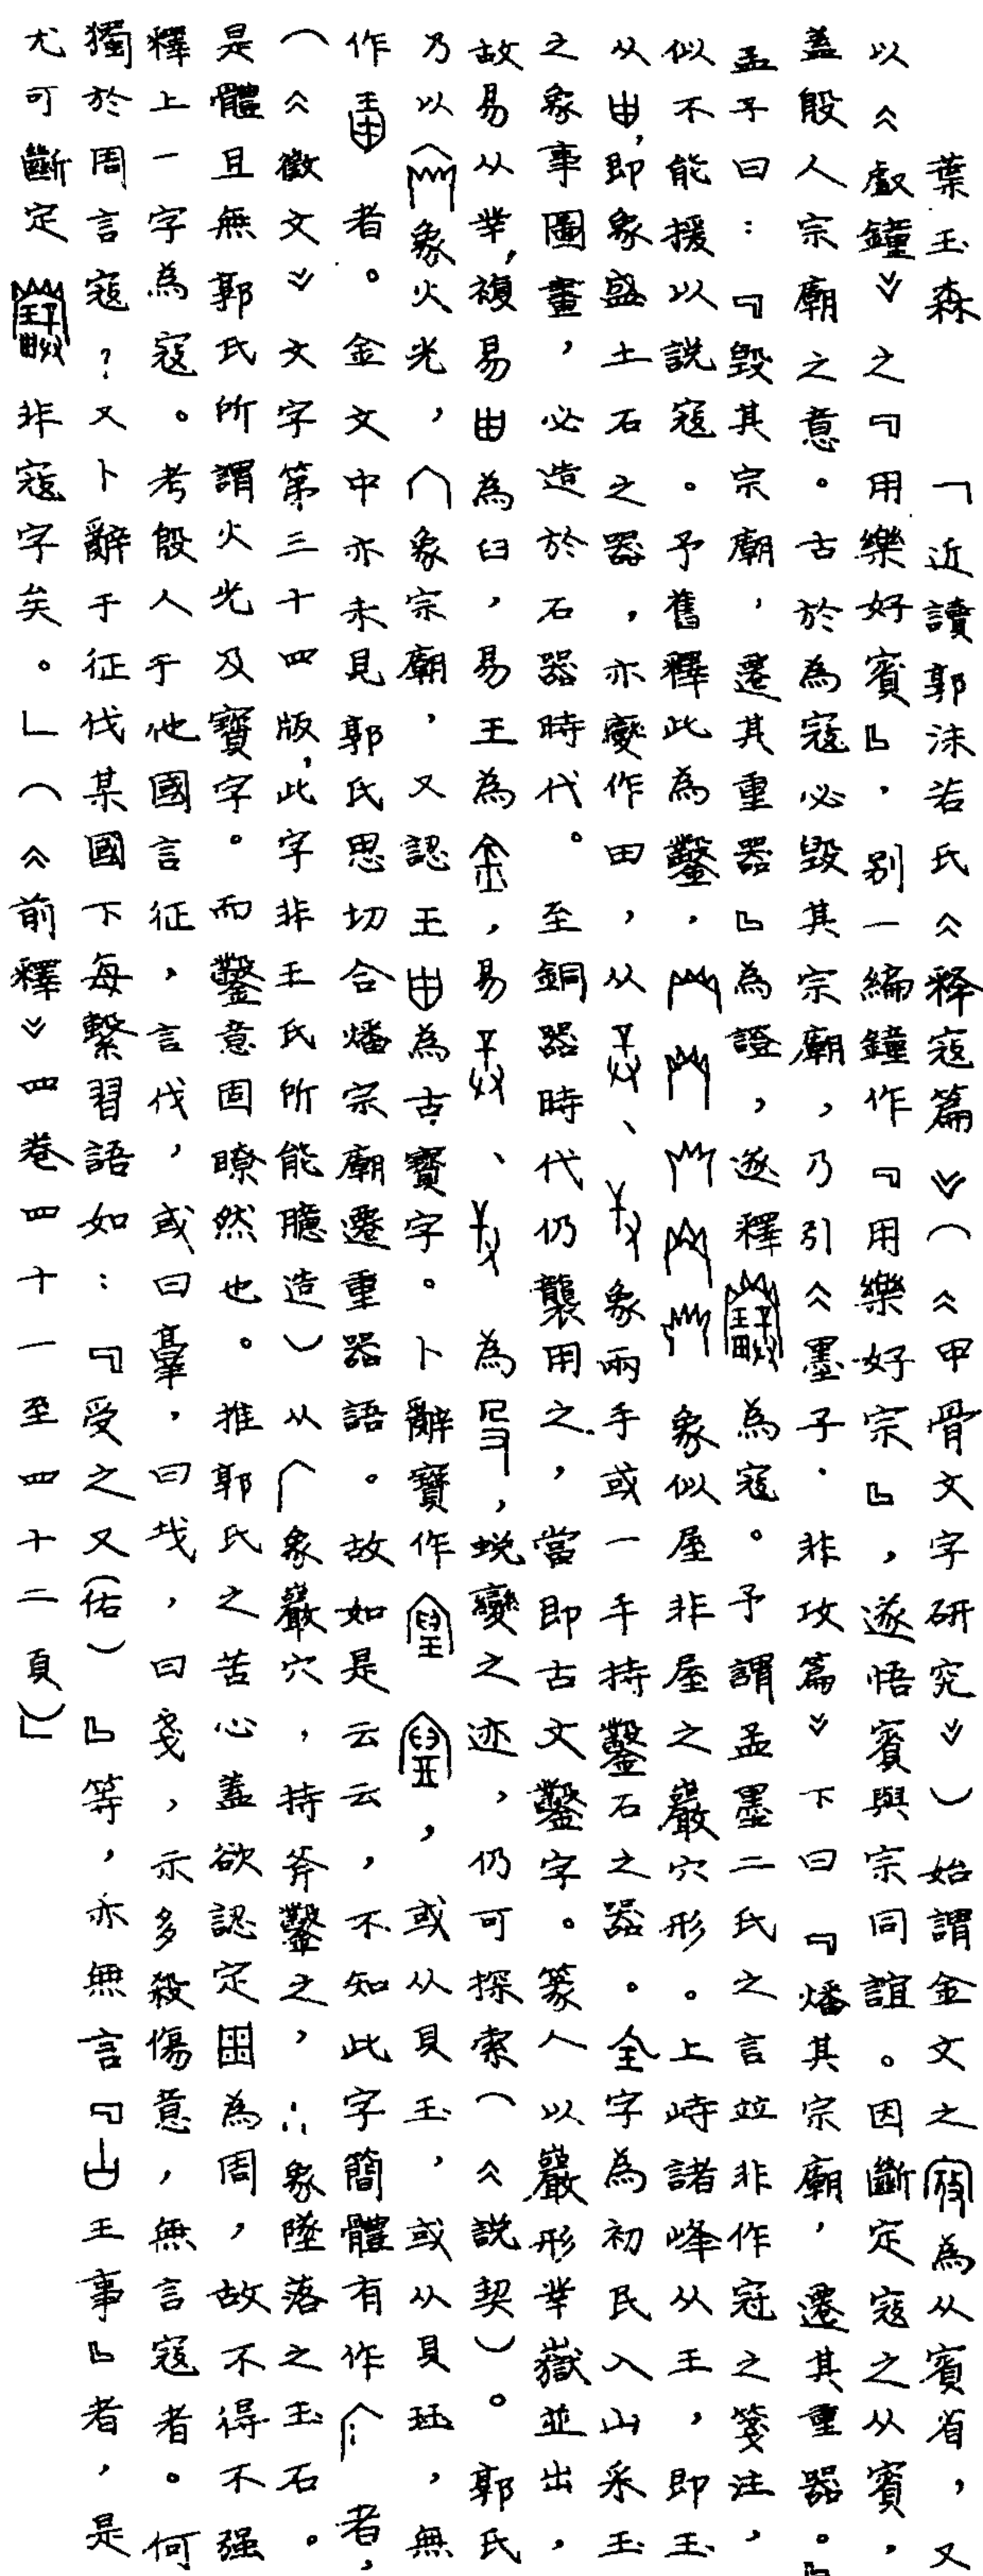 葉玉森　「近讀郭沫若氏《释寇篇》（《甲骨文字研究》）始謂金文之為从賓省，又
以《𠭯鐘》之『用樂好賓』，别一編鐘作『用樂好宗』，遂悟賓與宗同誼。因斷定寇之从賓，
蓋殷人宗廟之意。古於為寇必毀其宗廟，乃引《墨子·非攻篇》下曰『燔其宗廟，遷其重器。』
孟子曰：『毀其宗廟，遷其重器』為證，遂釋為寇。予謂孟墨二氏之言並非作寇之箋注，
似不能援以説寇。予舊釋此為鑿，象似屋非屋之巖穴形。上峙諸峰从王，即玉
从甾，即象盛土石之器，亦變作田，从、象兩手或一手持鑿石之器。全字為初民入山采玉
之象事圖畫，必造於石器時代。至銅器時代仍襲用之，當即古文鑿字。篆人以巖形丵嶽並出，
故易从丵，複易甾為臼，易王為金，易、為殳，蜕變之迹，仍可探索（《説契）。郭氏
乃以象火光，宀象宗廟，又認王甾為古寶字。卜辭寶作，或从貝玉，或从貝珏，無
作者。金文中亦未見郭氏思切合燔宗廟遷重器語。故如是云云，不知此字簡體有作者，
（《徵文》文字第三十四版，此字非王氏所能臆造）从象巖穴，持斧鑿之，象墜落之玉石。
是體且無郭氏所謂火光及寶字。而鑿意固瞭然也。推郭氏之苦心蓋欲認定為周，故不得不强
釋上一字為寇。考殷人于他國言征，言伐，或曰𦎫，曰𢦏，曰戔，示多殺傷意，無言寇者。何
獨於周言寇？又卜辭于征伐某國下每繫習語如：『受之又（佑）』等，亦無言『王事』者，是
尤可斷定非寇字矣。」（《前釋》四卷四十一至四十二頁）」